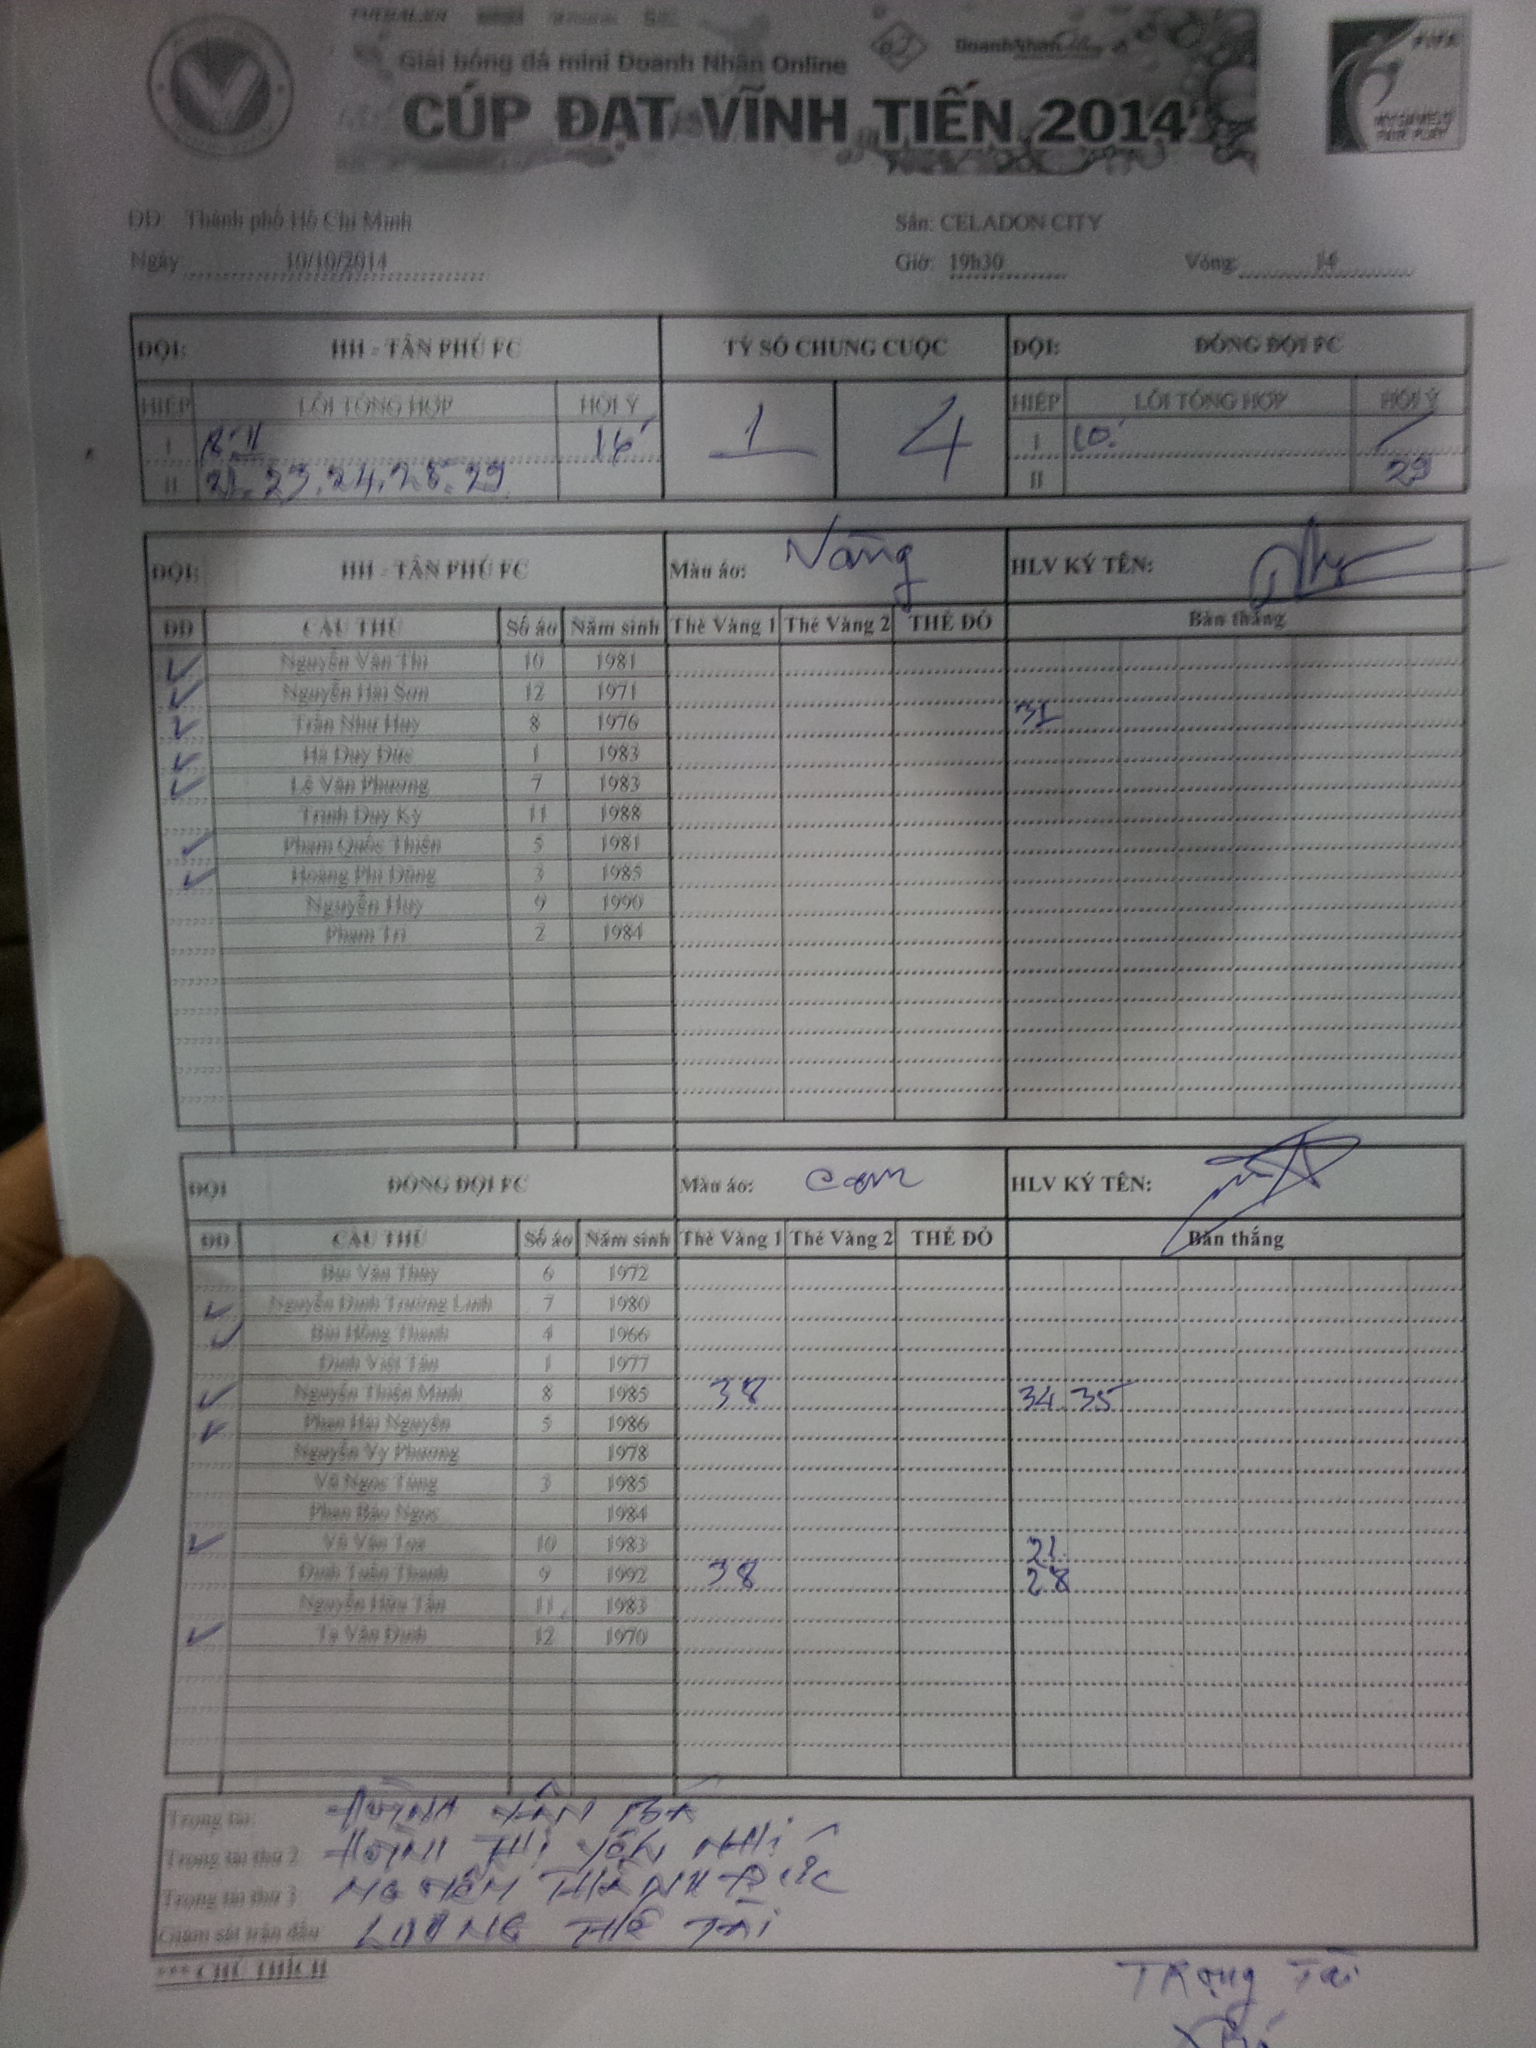 Giải bóng đá mini Doanh Nhân Online
CÚP ĐẠT VĨNH TIẾN 2014
FIFA
MY GAME IS FAIR PLAY
ĐĐ: Thành phố Hồ Chí Minh Sân: CELADON CITY
Ngày 10/10/2014 Giờ: 19h30 Vòng: 14
ĐỘI: HH - TÂN PHÚ FC TỶ SỐ CHUNG CUỘC ĐỘI: ĐỒNG ĐỘI FC
HIỆP LỖI TỔNG HỢP HỘI Ý 1 4 HIỆP LỖI TỔNG HỢP HỘI Ý
I 16' I 10'
II 23. 24. 28. 29 II 29
ĐỘI: HH - TÂN PHÚ FC Màu áo: Vàng HLV KÝ TÊN:
ĐD CẦU THỦ Số áo Năm sinh Thẻ Vàng 1 Thẻ Vàng 2 THẺ ĐỎ Bàn thắng
Nguyễn Văn Thi 10 1981
Nguyễn Hải Sơn 12 1971
Trần Như Huy 8 1976 31
Hà Duy Đức 1 1983
Lê Văn Phương 7 1983
Trịnh Duy Kỳ 11 1988
Phạm Quốc Thiện 5 1981
Hoàng Phi Dũng 3 1985
Nguyễn Huy 9 1990
Phạm Trí 2 1984
ĐỘI ĐỒNG ĐỘI FC Màu áo: cam HLV KÝ TÊN:
ĐD CẦU THỦ Số áo Năm sinh Thẻ Vàng 1 Thẻ Vàng 2 THẺ ĐỎ Bàn thắng
Bùi Văn Thùy 6 1972
Nguyễn Đinh Trường Linh 7 1980
Bùi Hồng Thanh 4 1966
Đinh Viết Tân 1 1977
Nguyễn Thiện Minh 8 1985 38 34 35
Phan Hải Nguyên 5 1986
Nguyễn Vy Phương 1978
Vũ Ngọc Tùng 3 1985
Phan Bảo Ngọc 1984
Vũ Văn Toa 10 1983 21
Đinh Tuấn Thanh 9 1992 38 28
Nguyễn Hữu Tấn 11 1983
Tạ Văn Định 12 1970
Trọng tài: HUỲNH TẤN BÁ
Trọng tài thứ 2 HUỲNH THỊ YẾN NHI
Trọng tài thứ 3 THÀNH ĐỨC
Giám sát trận đấu LƯƠNG THẾ TÀI
*** CHÚ THÍCH
Trọng Tài